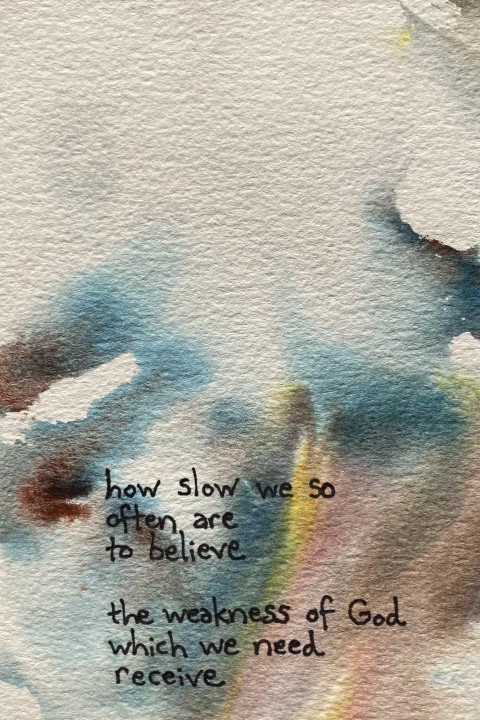 how slow we so
often are
to believe
the weakness of God
which we need
receive